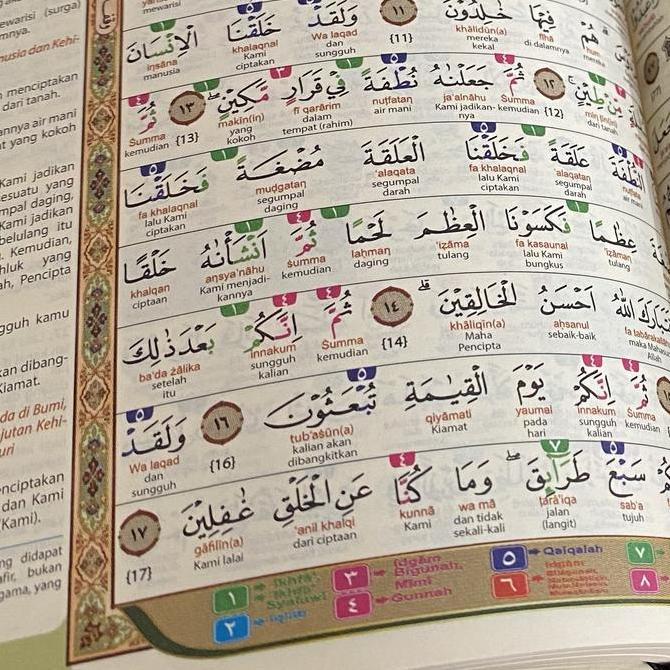 ewarisi (surga)
mnya.
nusia dan Kehi-
menciptakan
dari tanah.
annya air mani
at yang kokoh
Kami jadikan
esuatu yang
mpal daging,
Kami jadikan
belulang itu
Kemudian,
hluk yang
ah, Pencipta
gguh kamu
kan dibang-
Kiamat.
da di Bumi,
jutan Kehi-
uri
enciptakan
dan Kami
Kami).
ng didapat
afir, bukan
gama, yang
mewarisi
هُمْ فِيْهَا خٰلِدُوْنَ ١١ وَلَقَدْ خَلَقْنَا الْاِنْسَانَ
hum fīhā khālidūn(a) Wa laqad khalaqnal insāna
mereka di dalamnya mereka kekal {11} dan sungguh Kami ciptakan manusia
مِنْ طِيْنٍ ۚ ١٢ ثُمَّ جَعَلْنٰهُ نُطْفَةً فِيْ قَرَارٍ مَّكِيْنٍ ۖ ١٣ ثُمَّ
min ṭīn(in) Ṡumma ja'alnāhu nuṭfatan fī qarārim makīn(in) Ṡumma
dari tanah {12} kemudian Kami jadikan-nya air mani dalam tempat (rahim) yang kokoh {13} kemudian
النُّطْفَةَ عَلَقَةً فَخَلَقْنَا الْعَلَقَةَ مُضْغَةً فَخَلَقْنَا
nuṭfata 'alaqatan fa khalaqnal 'alaqata muḍgatan fa khalaqnal
air mani segumpal darah lalu Kami ciptakan segumpal darah segumpal daging lalu Kami ciptakan
عِظٰمًا فَكَسَوْنَا الْعِظٰمَ لَحْمًا ثُمَّ اَنْشَأْنٰهُ خَلْقًا
'iẓāman fa kasaunal 'iẓāma laḥman ṡumma ansya'nāhu khalqan
tulang lalu Kami bungkus tulang daging kemudian Kami menjadi-kannya ciptaan
اللّٰهُ اَحْسَنُ الْخَالِقِيْنَ ۗ ١٤ ثُمَّ اِنَّكُمْ بَعْدَ ذٰلِكَ
aḥsanul khāliqīn(a) Ṡumma innakum ba'da żālika
Allah sebaik-baik Maha Pencipta {14} kemudian sungguh kalian setelah itu
ثُمَّ اِنَّكُمْ يَوْمَ الْقِيٰمَةِ تُبْعَثُوْنَ ١٦ وَلَقَدْ
Ṡumma innakum yaumal qiyāmati tub'aṡūn(a) Wa laqad
kemudian sungguh kalian pada hari Kiamat kalian akan dibangkitkan {16} dan sungguh
سَبْعَ طَرَاۤىِٕقَ ۖ وَمَا كُنَّا عَنِ الْخَلْقِ غٰفِلِيْنَ ١٧
sab'a ṭarā'iqa wa mā kunnā 'anil khalqi gāfilīn(a)
tujuh jalan (langit) dan tidak sekali-kali Kami dari ciptaan Kami lalai {17}
١ Ikhfa', Ikhfa' Syafawi ٣ Idgam Bigunah, Mimi ٥ Qalqalah ٧
٢ Iqlab ٤ Gunnah ٦ Idgam ٨